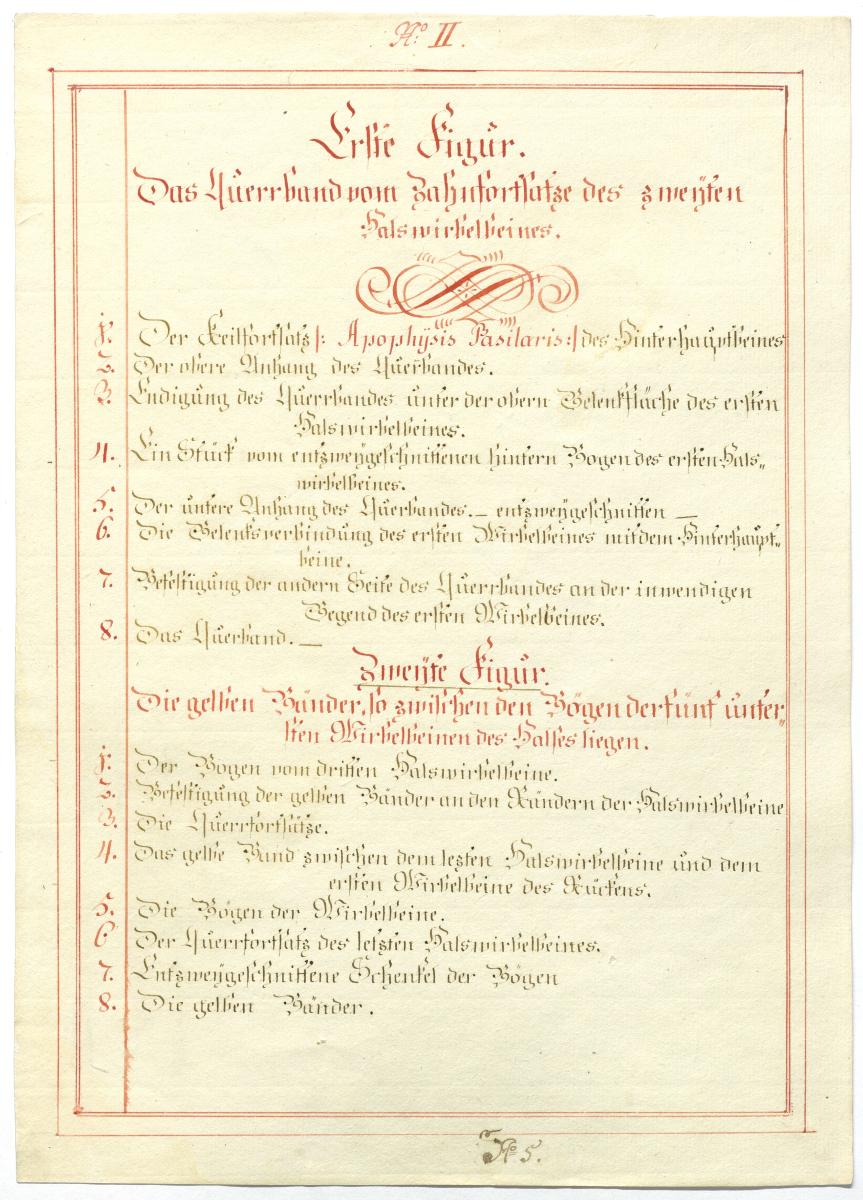 No II.
Erste Figur.
Das Querrband vom Zahnfortsatze des zweyten
Halswirbelbeines.
1. Der Keilfortsatz |: Apophysis Basilaris :| des Hinterhauptbeines
2. Der obere Anhang des Querbandes.
3. Endigung des Querrbandes unter der obern Gelenkfläche des ersten
Halswirbelbeines.
4. Ein Stück vom entzweygeschnittenen hintern Bogen des ersten Hals„
wirbelbeines.
5. Der untere Anhang des Querbandes. — entzweygeschnitten —
6. Die Gelenksverbindung des ersten Wirbelbeines mit dem Hinterhaupt„
beine.
7. Befestigung der andern Seite des Querrbandes an der inwendigen
Gegend des ersten Wirbelbeines.
8. Das Querband. —
Zweyte Figur.
Die gelben Bänder, so zwischen den Bögen der fünf unter„
sten Wirbelbeinen des Halses liegen.
1. Der Bogen vom dritten Halswirbelbeine.
2. Befestigung der gelben Bänder an den Rändern der Halswirbelbeine
3. Die Querrfortsätze.
4. Das gelbe Band zwischen dem lezten Halswirbelbeine und dem
ersten Wirbelbeine des Rückens.
5. Die Bögen der Wirbelbeine.
6 Der Querrfortsatz des letzten Halswirbelbeines.
7. Entzweygeschnittene Schenkel der Bögen
8. Die gelben Bänder.
No 5.